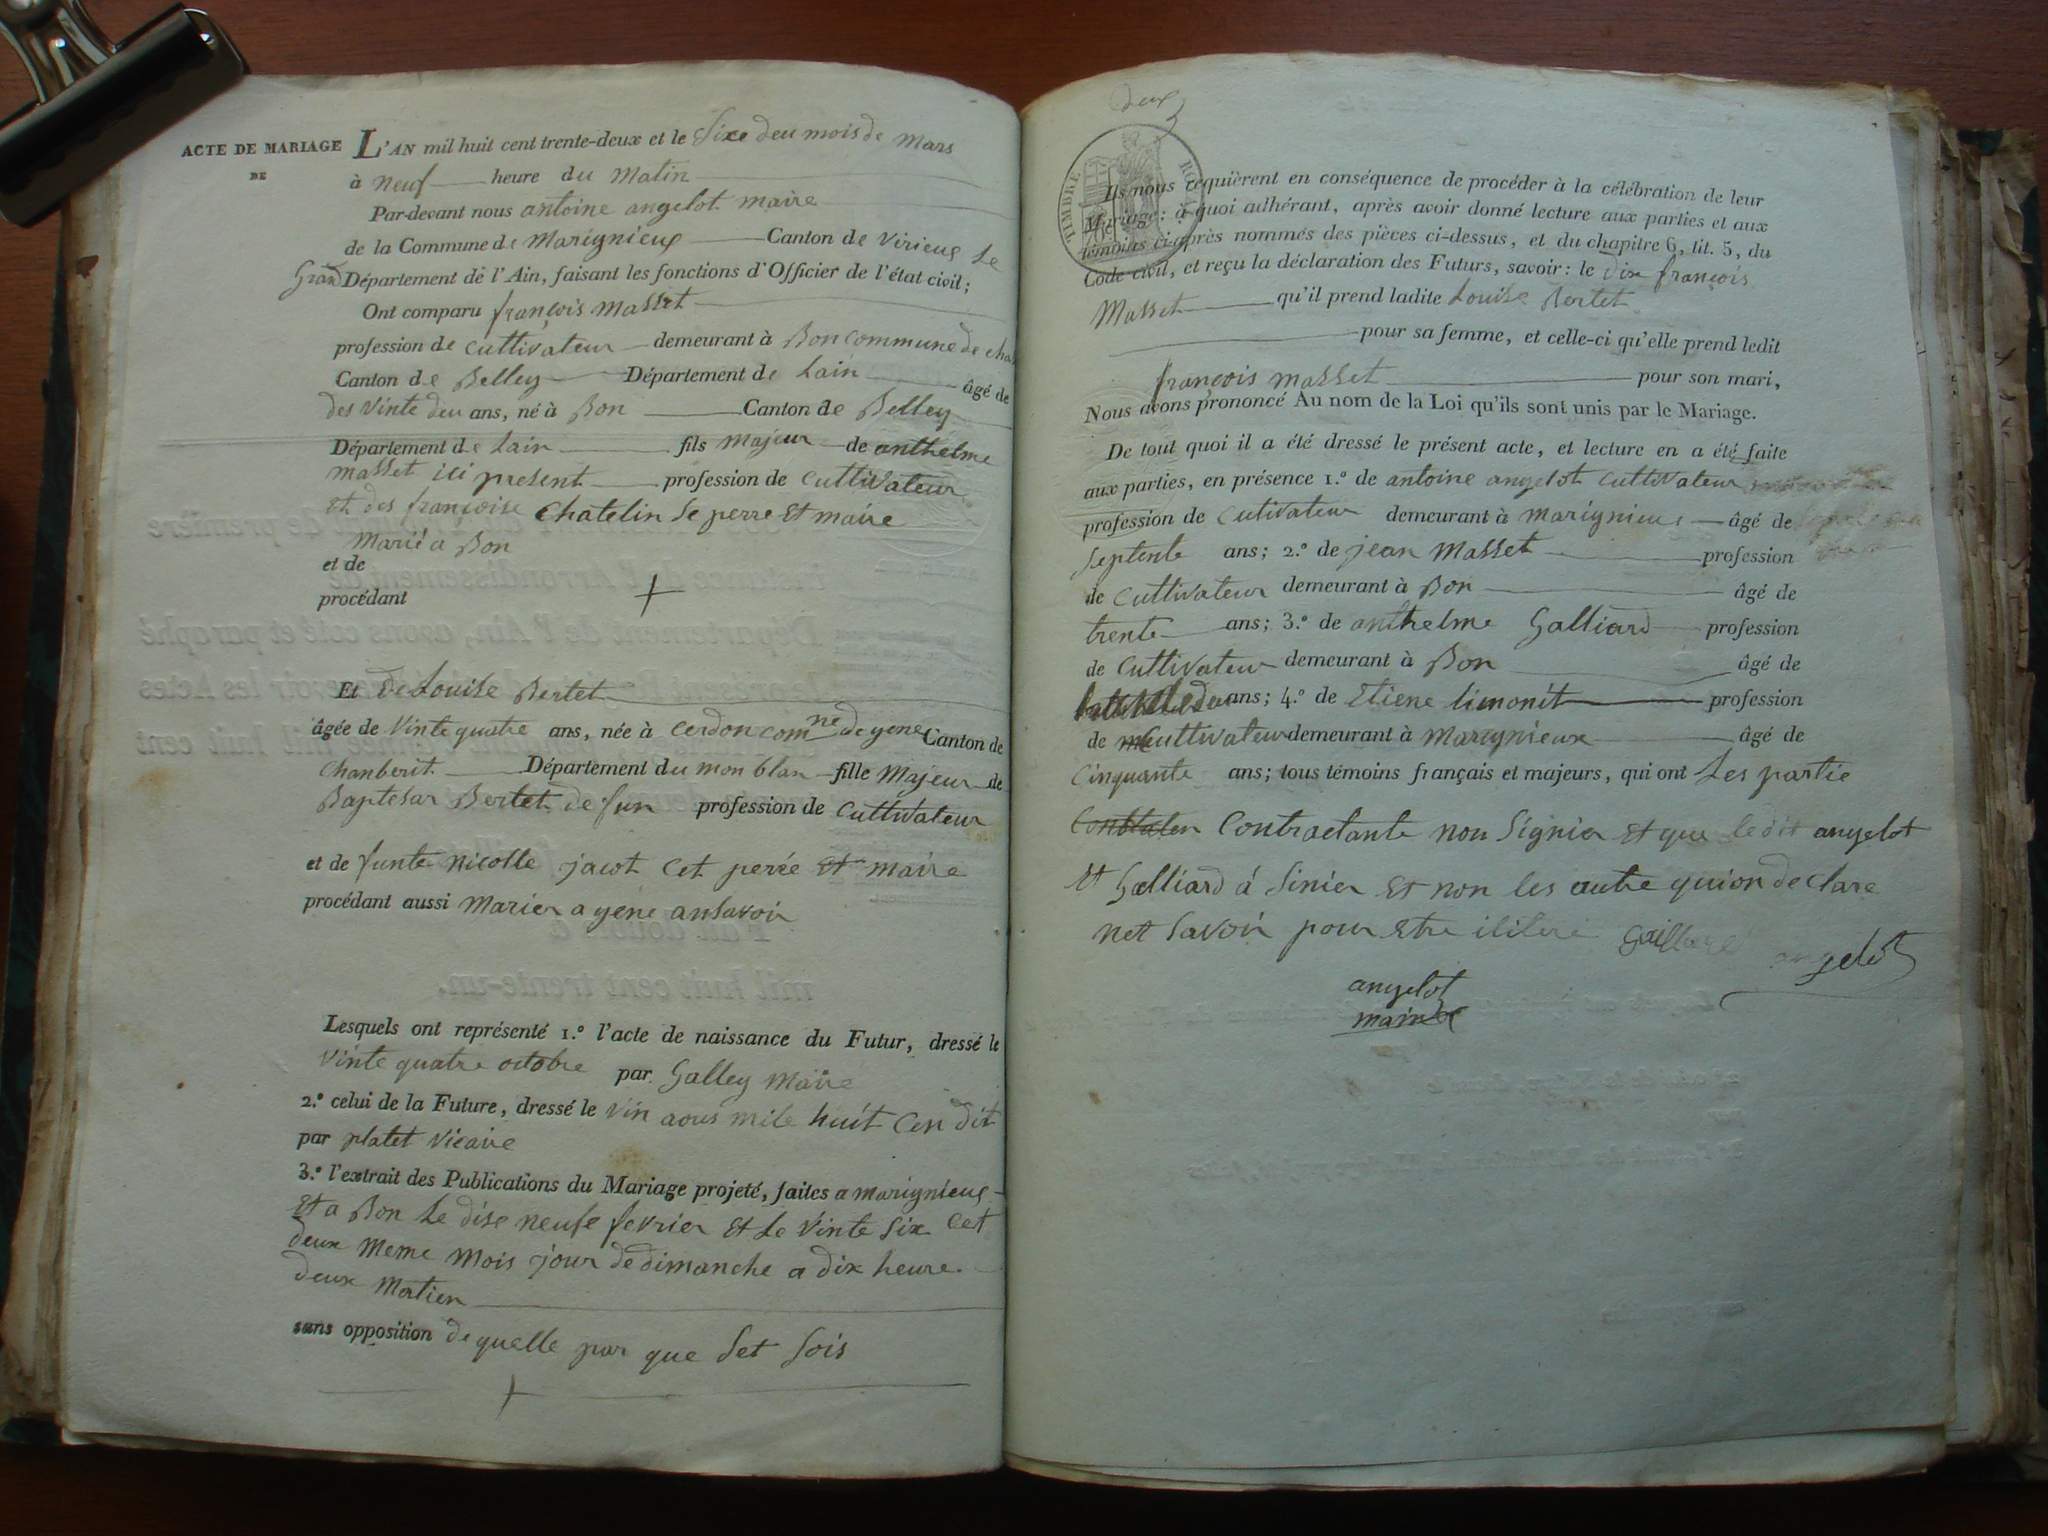 ACTE DE MARIAGE
DE
L'AN mil huit cent trente-deux et le Sixe deu mois de Mars
à neuf heure du Matin
Par-devant nous antoine angelot maire
de la Commune de Marignieux Canton de Virieux Le
Grand Département de l'Ain, faisant les fonctions d'Officier de l'état civil;
Ont comparu françois Masset
profession de Cultivateur demeurant à Bon commune de cha
Canton de Belley Département de Lain âgé de
des Vinte deu ans, né à Bon Canton de Belley
Département de Lain fils majeur de anthelme
masset ici present profession de Cultivateur
et des françoise Chatelin Se perre et maire
Marié a Bon
et de
procédant
Et de Louise Bertet
âgée de Vinte quatre ans, née à Cerdon comne de yene Canton de
Chanberit Département du mon blan fille Majeur de
Baptesar Bertet de fun profession de Cultivateur
et de funte nicolle jacot Cet perée et maire
procédant aussi Marier a yene ansavoir
Lesquels ont représenté 1.° l'acte de naissance du Futur, dressé le
Vinte quatre octobre par Galley Maire
2.° celui de la Future, dressé le Vin aous mile huit Cen dit
par platet Vicaire
3.° l'extrait des Publications du Mariage projeté, faites a marignieux
Et a Bon Le dise neufe fevrier Et Le Vinte Six Cet
deux Meme Mois jour de dimanche a dix heure
deux Matien
sans opposition de quelle par que Set Sois
deux
TIMBRE ROYAL
Ils nous requièrent en conséquence de procéder à la célébration de leur
Mariage: à quoi adhérant, après avoir donné lecture aux parties et aux
témoins ci-après nommés des pièces ci-dessus, et du chapitre 6, tit. 5, du
Code civil, et reçu la déclaration des Futurs, savoir: le dix françois
Masset qu'il prend ladite Louise Bertet
pour sa femme, et celle-ci qu'elle prend ledit
françois masset pour son mari,
Nous avons prononcé Au nom de la Loi qu'ils sont unis par le Mariage.
De tout quoi il a été dressé le présent acte, et lecture en a été faite
aux parties, en présence 1.° de antoine angelot Cultivateur
profession de Cutivateur demeurant à marignieux âgé de
Septente ans; 2.° de jean Masset profession
de Cultivateur demeurant à Bon âgé de
trente ans; 3.° de anthelme Galliard profession
de Cultivateur demeurant à Bon âgé de
ans; 4.° de Etiene limonit profession
de Cultivateur demeurant à Marignieux âgé de
Cinquante ans; tous témoins français et majeurs, qui ont Les partie
Contractante non Signier Et que ledit angelot
Et Galliard á Sinier Et non les autre quion declare
net Savoir pour Etre ilitere Gailliard angelot
angelot
maire